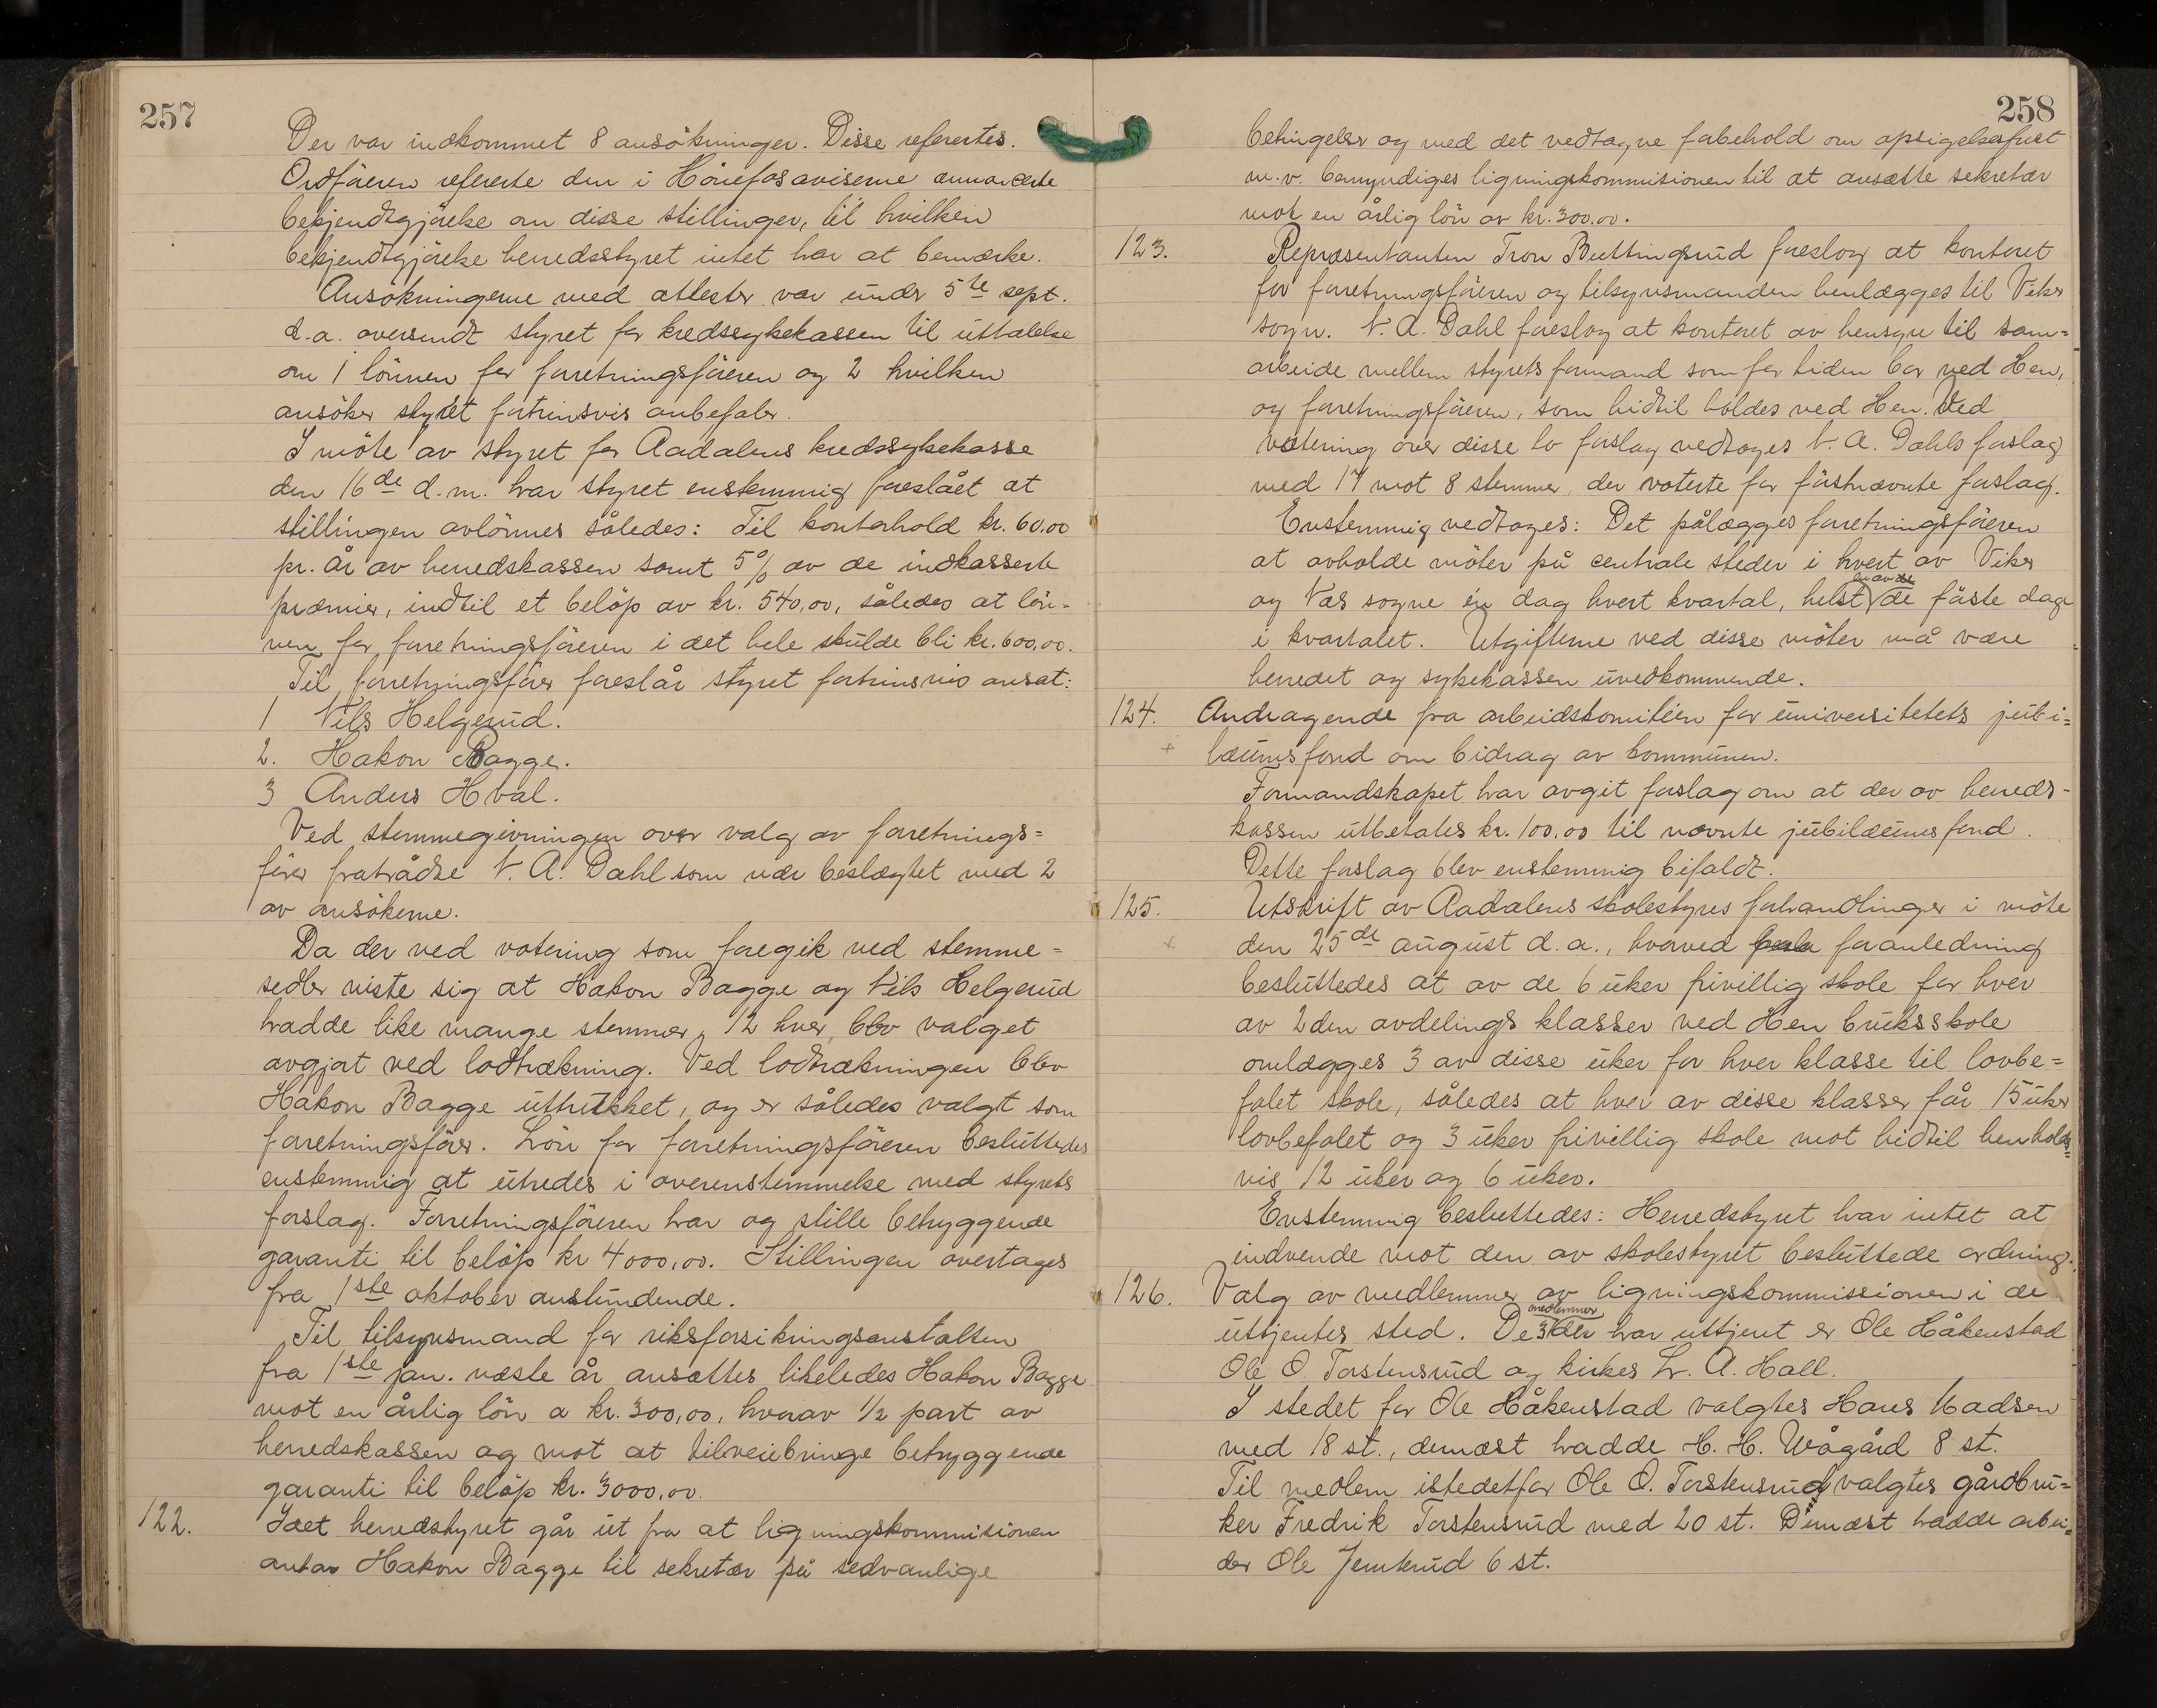 257
Der var indkommet 8 ansökninger. Disse refertes.
Ordföreren refererte den i Hönefosaviserne annoncerte
bekjendtgjörelse om disse stillinger, til hvilken
bekjendtgjörelse herredsstyret intet har at bemærke.
Ansökningerne med attester var under 5te sept.
d.a. oversendt styret for kredssykekassen til uttalelse
om 1 lönnen for forretningsföreren og 2 hvilken
ansöker styret fortrinsvis anbefaler.
I möte av styret for Aadalens kredssykekasse
den 16de d.m. har styret enstemmig foreslået at
stillingen avlönnes således: Til kontorhold kr. 60.00
pr. år av herredskassen samt 5% av de indkasserte
præmier, indtil et belöp av kr. 540,00, således at lön-
nen for forretningsföreren i det hele skulde bli kr. 600,00.
Til forretningsförer foreslår styret fortrinsvis ansat:
1 Nils Helgerud.
2. Hakon Bagge.
3 Anders Hval.
Ved stemmegivningen over valg av forretnings=
förer fratrådte N. A. Dahl som var beslægtet med 2
av ansökerne.
Da der ved votering som foregik ved stemme=
sedler viste sig at Hakon Bagge og Nils Helgerud
hadde like mange stemmer, 12 hver, blev valget
avgjort ved lodtrækning. Ved lodtrækningen blev
Hakon Bagge uttrukket, og er således valgt som
forretningsförer. Lön for forretningsföreren besluttedes
enstemmig at utredes i overenstemmelse med styrets
forslag. Forretningsföreren har og stille betryggende
garanti til belöp kr 4000,00. Stillingen overtages
fra 1ste oktober anstundende.
Til tilsynsmand for riksforsikringsanstalten
fra 1ste jan. næste år ansættes likeledes Hakon Bagge
mot en årlig lön a kr. 300,00, hvorav 1/2 part av
herredskassen og mot at tilveiebringe betryggende
garanti til belöp kr. 3000,00.
122. Idet herredstyret går ut fra at ligningskommisionen
antar Hakon Bagge til sekretær på sedvanlige
258
betingelser og med det vedtagne forbehold om opsigelsesfrist
m.v. bemyndiges ligningskommisionen til at ansætte sekretær
mot en årlig lön av kr. 300.00.
123. Repræsentanten Tron Buttingsrud foreslog at kontoret
for forretningsföreren og tilsynsmanden henlægges til Vikers
sogn. N. A. Dahl foreslog at kontoret av hensyn til sam=
arbeide mellem styrets formand som for tiden bor ved Hen,
og forretningsföreren, som hidtil holdes ved Hen. Ved
votering over disse to forslag vedtoges N. A. Dahls forslag
med 17 mot 8 stemmer, der voterte for förstnævnte forslag.
Enstemmig vedtoges: Det pålægges forretningsföreren
at avholde möter på centrale steder i hvert av Viker
og Næs sogne én dag hvert kvartal, helst en av de förste dage
i kvartalet. Utgifterne ved disse möter må være
herredet og sykekassen uvedkommende.
124. Andragende fra arbeidskomitéen for universitetets jubi=
læumsfond om bidrag av kommunen.
Formandskapet har avgit forslag om at der av herreds-
kassen utbetales kr. 100,00 til nævnte jubilæumsfond.
Dette forslag blev enstemmig bifaldt.
125. Utskrift av Aadalens skolestyres forhandlinger i möte
den 25de august d. a., hvorved foranledning
besluttedes at av de 6 uker frivillig skole for hver
av 2den avdelings klasser ved Hen bruksskole
omlægges 3 av disse uker for hver klasse til lovbe=
falet skole, således at hver av disse klasser får 15 uker
lovbefalet og 3 uker frivillig skole mot hidtil henholds=
vis 12 uker og 6 uker.
Enstemmig besluttedes: Herredstyret har intet at
indvende mot den av skolestyret besluttede ordning.
126. Valg av medlemmer av ligningskommissionen i de
uttjentes sted. De 3 medlemmer der har uttjent er Ole Håkenstad
Ole O. Torstensrud og kirkes. L. A. Hall.
I stedet for Ole Håkenstad valgtes Hans Madsen
med 18 st., demæst hadde H. H. Wågård 8 st.
Til medlem istedetfor Ole O. Torstensrud valgtes gårdbru=
ker Fredrik Torstensrud med 20 st. Dernæst hadde arbei=
der Ole Jemterud 6 st.